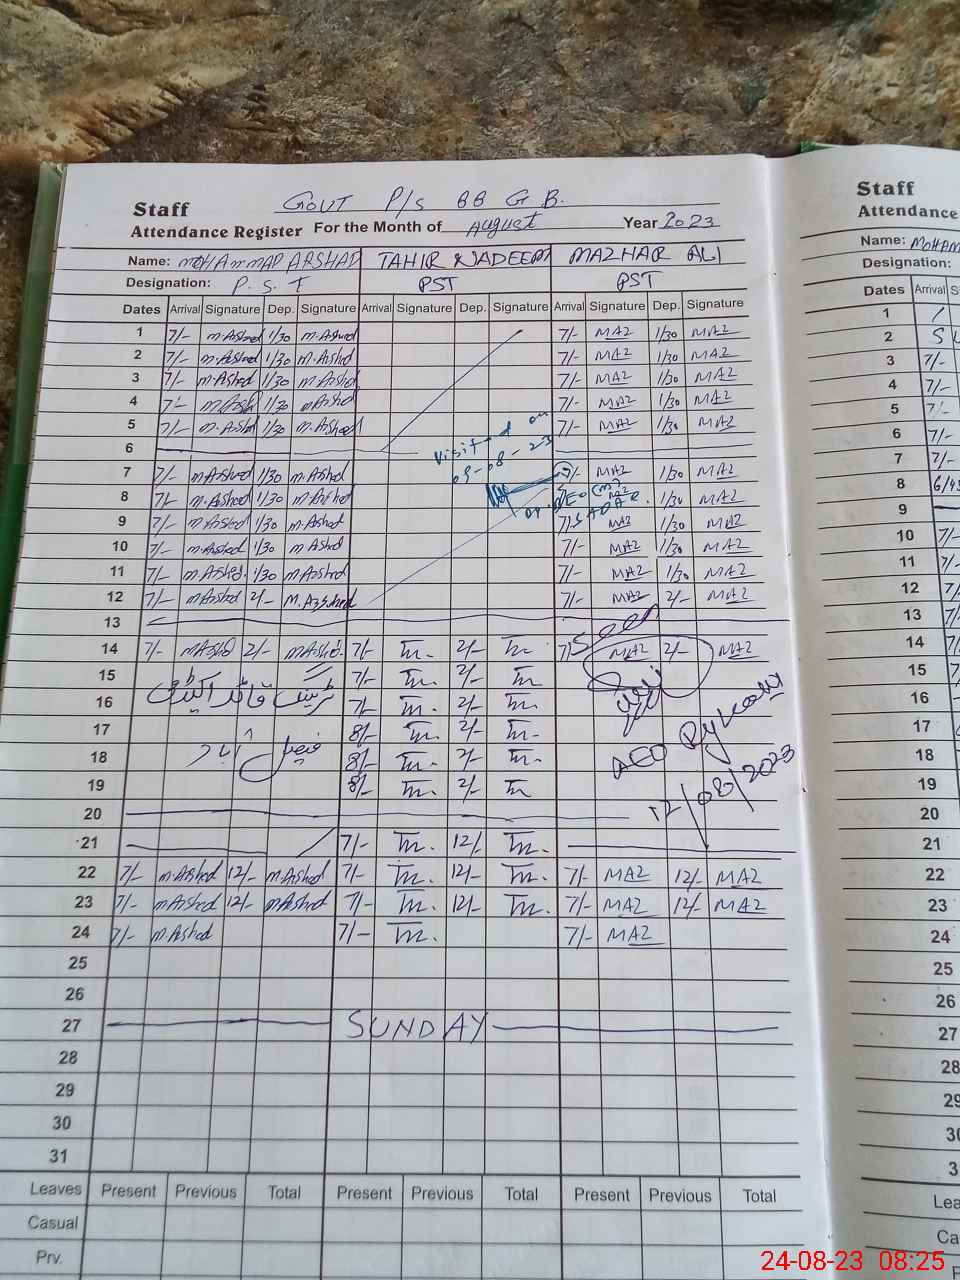 GOVT P/S BB G B.
Staff
Attendance Register For the Month of August Year 2023
Name: MOHAMMAD ARSHAD TAHIR NADEEM MAZHAR ALI
Designation: P. S. T PST PST
Dates Arrival Signature Dep. Signature Arrival Signature Dep. Signature Arrival Signature Dep. Signature
1 7/- m.Arshad 1/30 m.Arshad 7/- MAZ 1/30 MAZ
2 7/- m.Arshad 1/30 m.Arshad 7/- MAZ 1/30 MAZ
3 7/- m.Arshad 1/30 m.Arshad 7/- MAZ 1/30 MAZ
4 7/- m.Arshad 1/30 m.Arshad 7/- MAZ 1/30 MAZ
5 7/- m.Arshad 1/30 m.Arshad 7/- MAZ 1/30 MAZ
6
Visited on
09-08-23
7 7/- m.Arshad 1/30 m.Arshad 7/- MAZ 1/30 MAZ
8 7/- m.Arshad 1/30 m.Arshad MAZ 1/30 MAZ
DY. DEO (M)
SADAR.
9 7/- m.Arshad 1/30 m.Arshad 7/- MAZ 1/30 MAZ
10 7/- m.Arshad 1/30 m.Arshad 7/- MAZ 1/30 MAZ
11 7/- m.Arshad 1/30 m.Arshad 7/- MAZ 1/30 MAZ
12 7/- m.Arshad 2/- M.Arshad 7/- MAZ 2/- MAZ
13
Seen
14 7/- m.Arshad 2/- m.Arshad 7/- Tn. 2/- Tn. 7/- MAZ 2/- MAZ
15 7/- Tn. 2/- Tn
ٹریننگ قائد اکیڈمی
16 7/- Tn. 2/- Tn.
17 8/- Tn. 2/- Tn.
فیصل آباد
18 8/- Tn. 2/- Tn.
AEO
12/08/2023
19 8/- Tn. 2/- Tn
20
21 7/- Tn. 12/- Tn.
22 7/- m.Arshad 12/- m.Arshad 7/- Tn. 12/- Tn. 7/- MAZ 12/- MAZ
23 7/- m.Arshad 12/- m.Arshad 7/- Tn. 12/- Tn. 7/- MAZ 12/- MAZ
24 7/- m.Arshad 7/- Tn. 7/- MAZ
25
26
27 SUNDAY
28
29
30
31
Leaves Present Previous Total Present Previous Total Present Previous Total
Casual
Prv.
Staff
Attendance
Name: MOHAM
Designation:
Dates Arrival S
1 /
2 S
3 7/-
4 7/-
5 7/-
6 7/-
7 7/-
8 6/45
9
10 7/-
11 7/-
12 7/
13
14 7/-
15 7/-
16
17
18
19
20
21
22
23
24
25
26
27
28
29
30
3
Lea
Ca
P
24-08-23 08:25